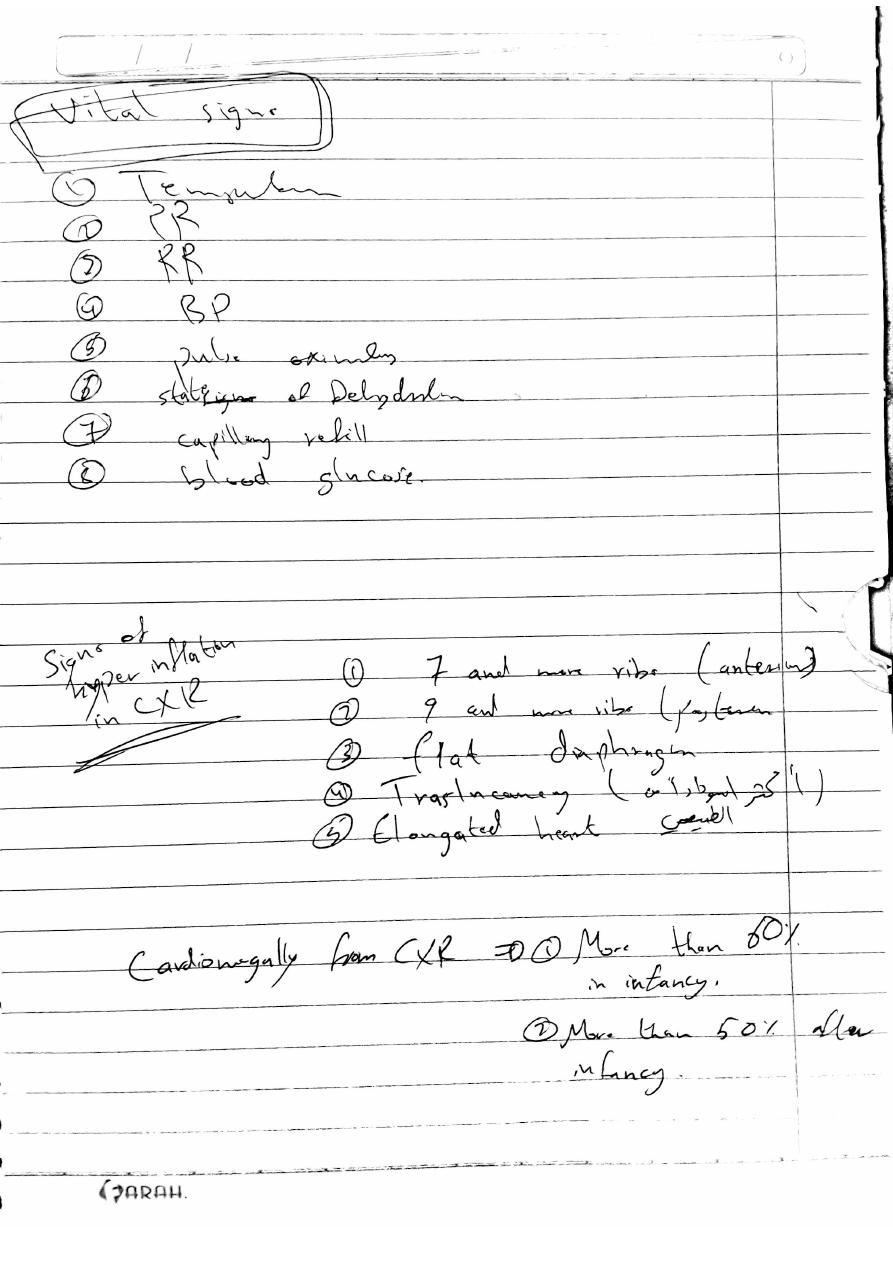 / /
Vital signs
① Temperature
② PR
③ RR
④ BP
⑤ pulse oximetry
⑥ state of Dehydration
⑦ capillary refill
⑧ blood glucose.
Signs of
hyper inflation
in CXR
① 7 and more ribs (anterior)
② 9 and more ribs (posterior
③ flat diaphragm
④ Traslucency (أكثر اسودادا من
الطبيعي)
⑤ Elongated heart
Cardiomegally from CXR ⇒ ① More than 60%
in infancy.
② More than 50% after
infancy.
SARAH.